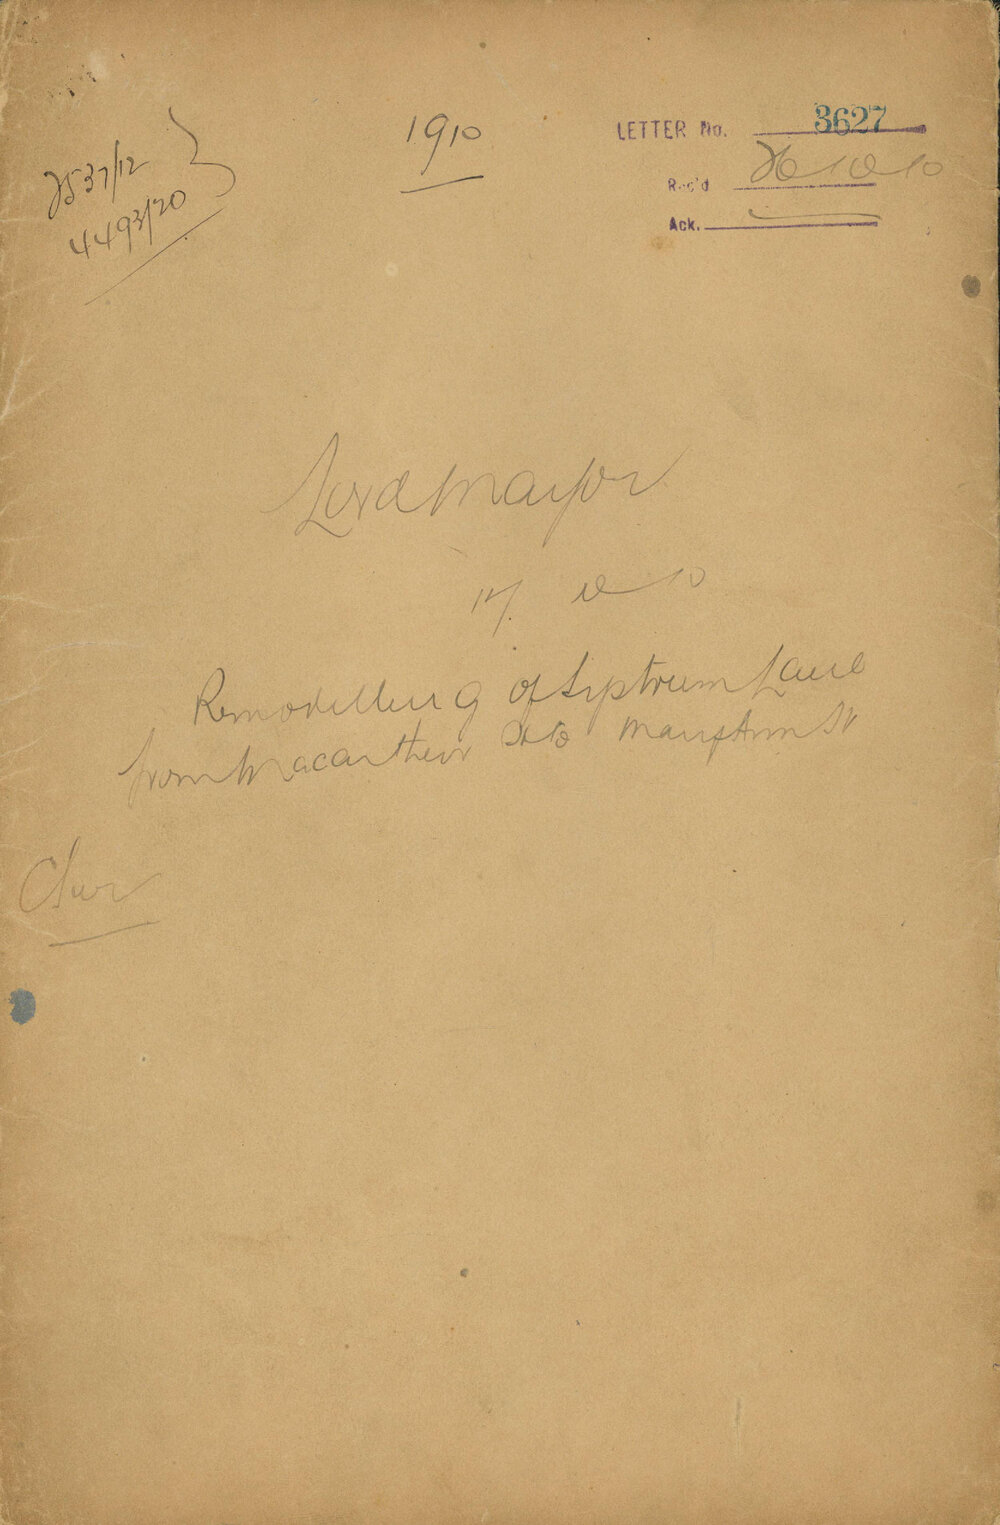 1910
LETTER No. 3627
2537/12
4493/20
Rec'd 26 10 10
Ack.
Lord Mayor
17. 10 10
Remodelling of Liptrum Lane
from Macarthur St to Mary Ann St